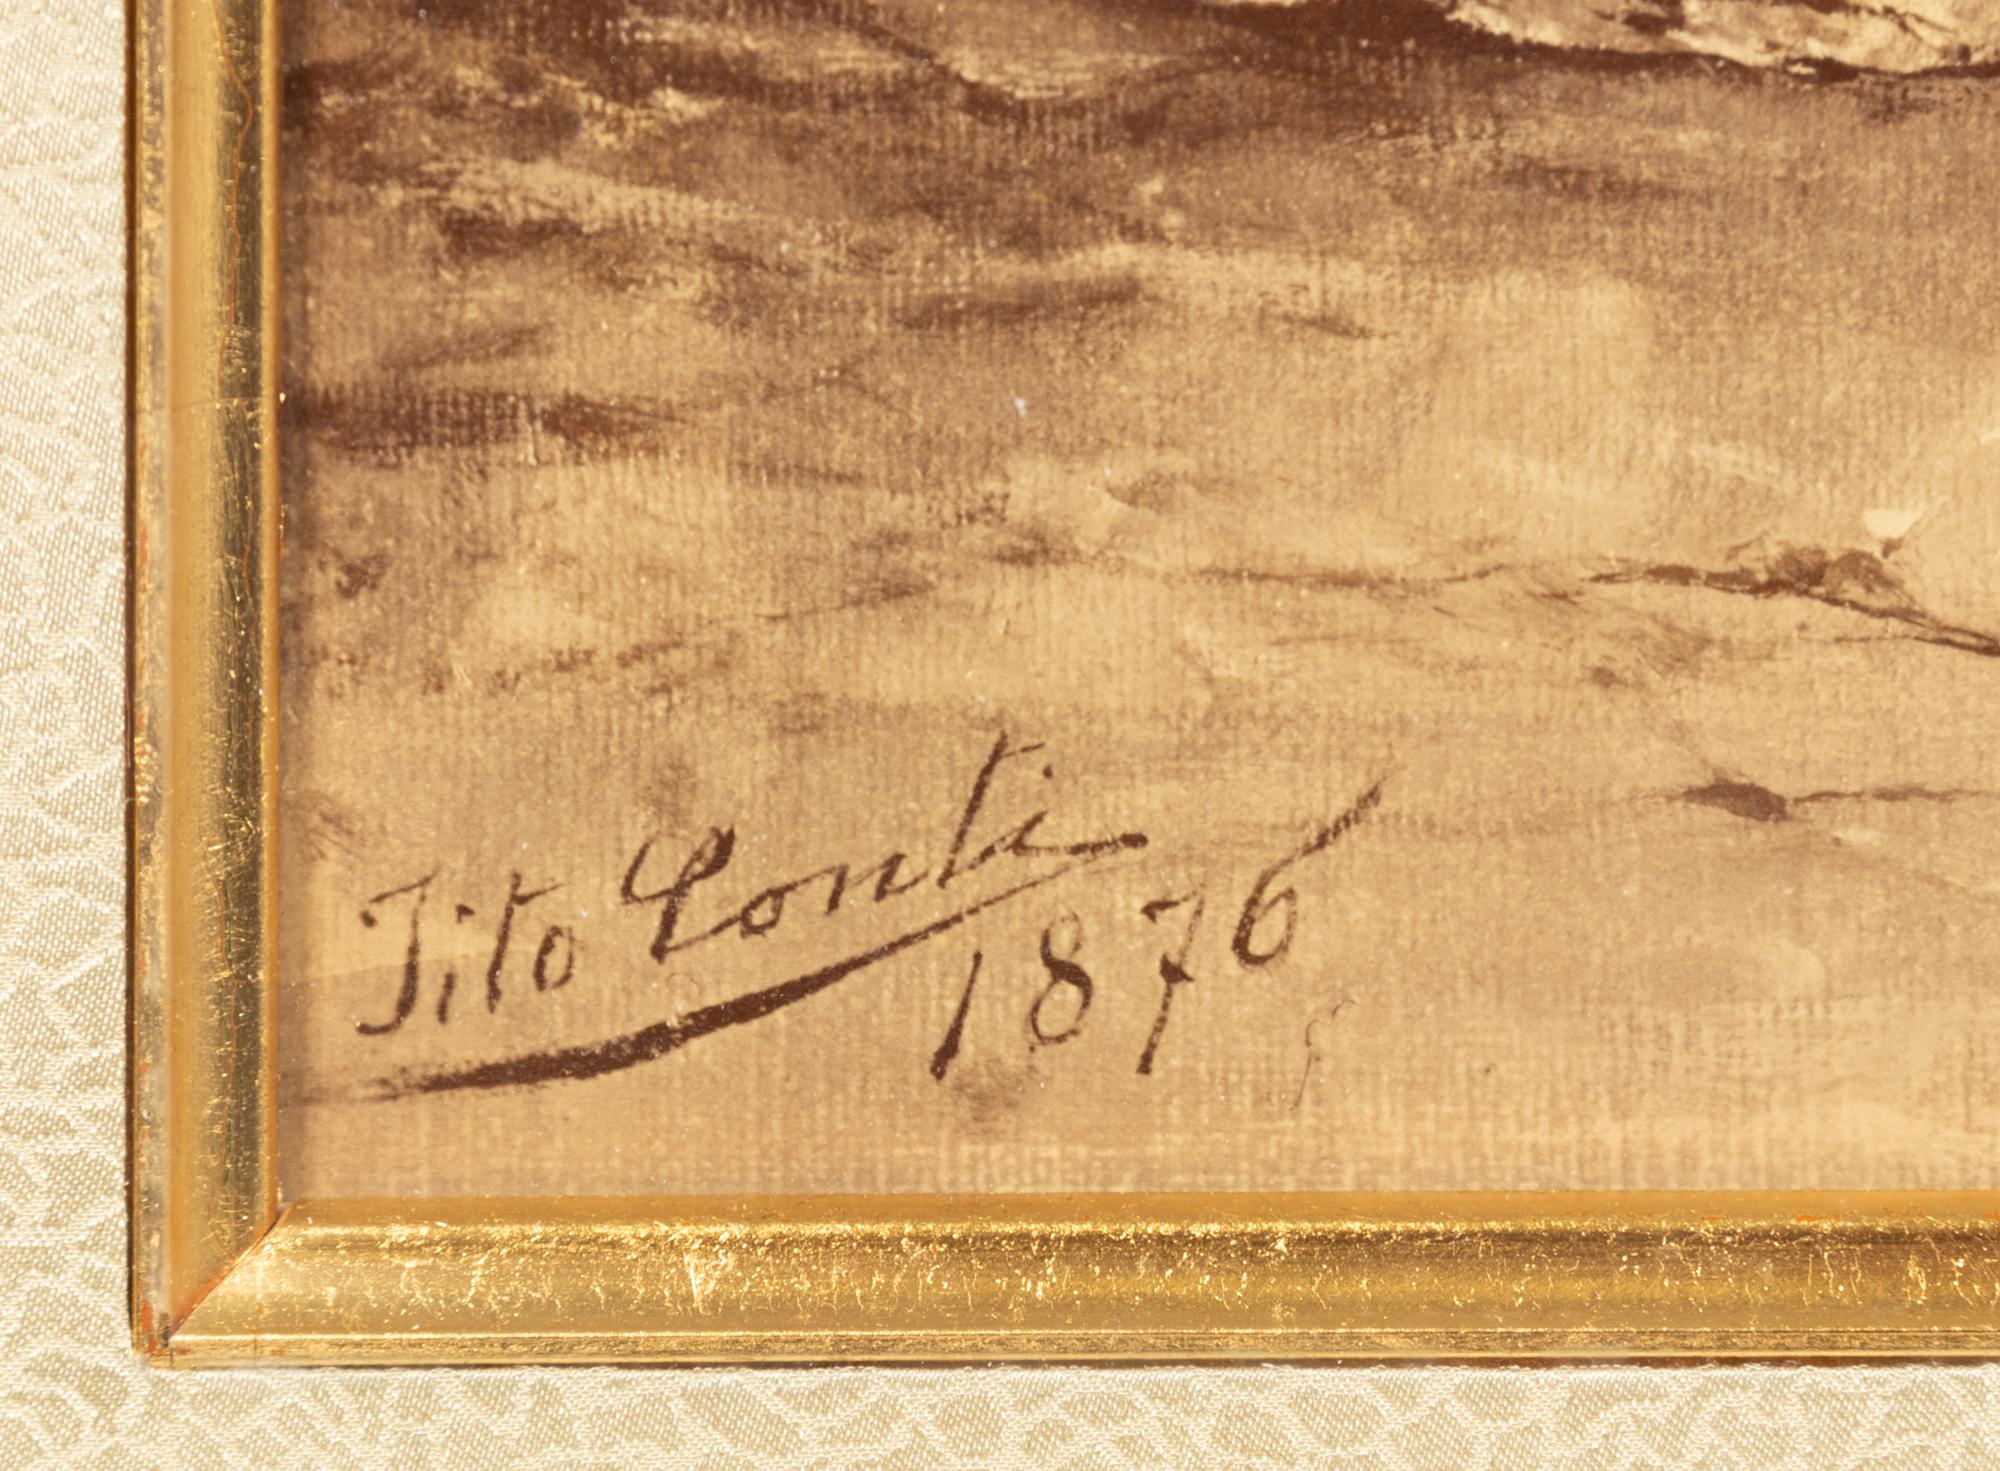 Tito Conti
1876